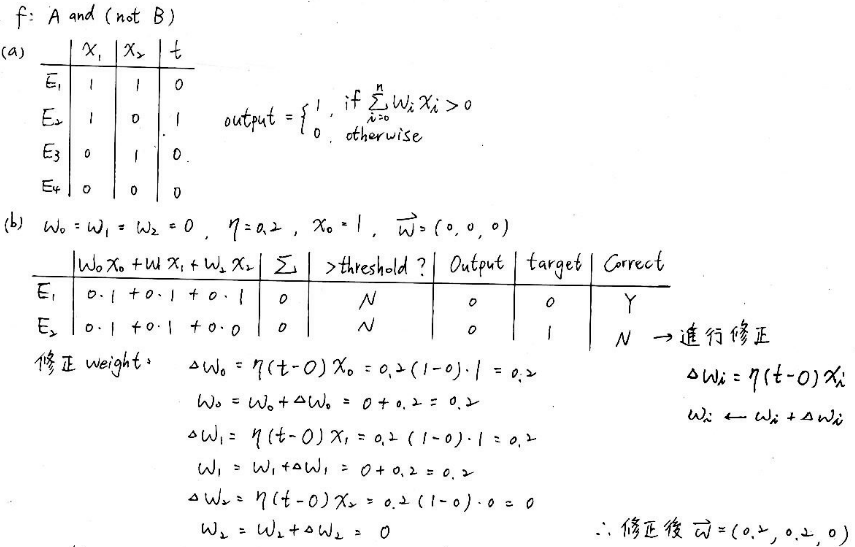 f: A and (not B)
(a) x₁ x₂ t
E₁ 1 1 0
E₂ 1 0 1
E₃ 0 1 0
E₄ 0 0 0
output = { 1, if Σⁿᵢ₌₀ Wᵢ Xᵢ > 0
0, otherwise
(b) W₀ = W₁ = W₂ = 0, η = 0.2, X₀ = 1, W⃗ = (0, 0, 0)
W₀X₀ + W₁X₁ + W₂X₂ Σ >threshold? Output target Correct
E₁ 0·1 + 0·1 + 0·1 0 N 0 0 Y
E₂ 0·1 + 0·1 + 0·0 0 N 0 1 N → 進行修正
修正 weight: ΔW₀ = η(t-0)X₀ = 0.2(1-0)·1 = 0.2
W₀ = W₀ + ΔW₀ = 0 + 0.2 = 0.2
ΔW₁ = η(t-0)X₁ = 0.2(1-0)·1 = 0.2
W₁ = W₁ + ΔW₁ = 0 + 0.2 = 0.2
ΔW₂ = η(t-0)X₂ = 0.2(1-0)·0 = 0
W₂ = W₂ + ΔW₂ = 0
ΔWᵢ = η(t-0)Xᵢ
Wᵢ ← Wᵢ + ΔWᵢ
∴ 修正後 W⃗ = (0.2, 0.2, 0)